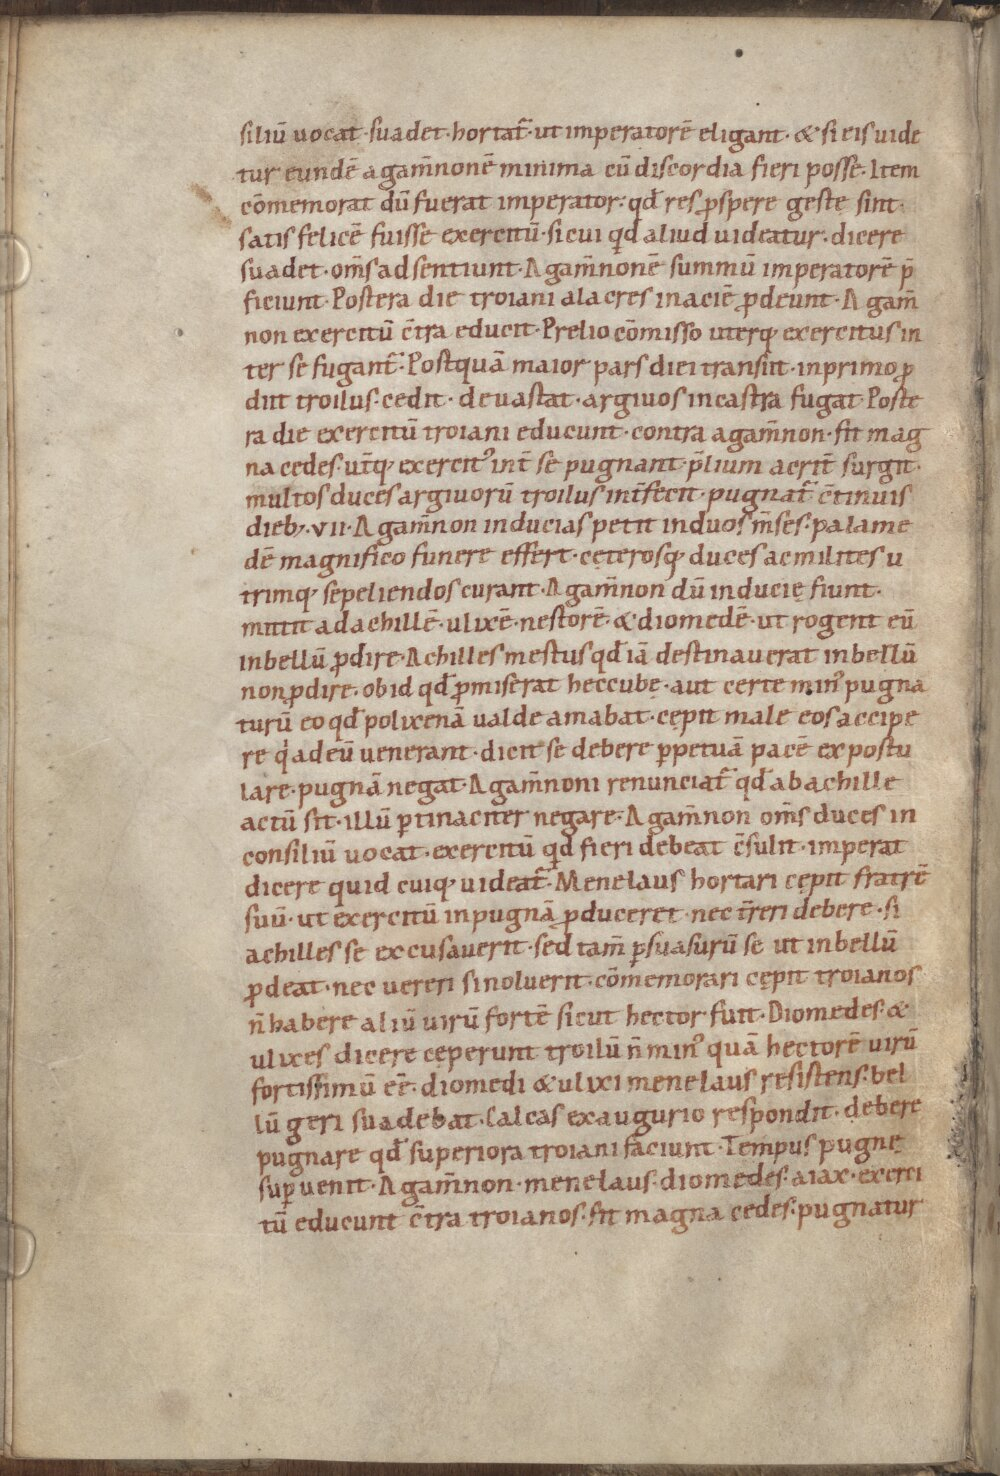 siliū uocat·suadet·hortat̄·ut imperatorē eligant·& si eis uide
tur eundē agam̄nonē minima cū discordia fieri posse·Item
cōmemorat dū fuerat imperator: qd̄ res ꝓspere geste sint·
satis felicē fuisse exercitū·si cui qd̄ aliud uideatur·dicere
suadet·om̄s adsentiunt·Agam̄nonē summū imperatorē p̄
ficiunt·Postera die troiani alacres in aciē ꝓdeunt·Agam̄
non exercitū c̄tra educit·Prelio cōmisso uterq; exercitus in
ter se fugant̄·Postquā maior pars diei transiit·in primo ꝓ
diit troilus·cedit·deuastat·argiuos in castra fugat·Poste
ra die exercitū troiani educunt·contra agam̄non·fit mag
na cedes·ut̄q; exercit᾽ int̄ se pugnant·p̄lium acrit̄ surgit·
multos duces argiuorū troilus int̄fecit·pugnat̄ c̄tinuis
dieb;·vii·Agam̄non inducias petit in duos m̄ses·palame
dē magnifico funere effert·cęterosq; duces ac milites u
trimq; sepeliendos curant·Agam̄non dū inducię fiunt·
mittit ad achillē·ulixē·nestorē·& diomedē·ut rogent eū
in bellū ꝓdire·Achilles mestus qd̄ iā destinauerat in bellū
non ꝓdire·ob id qd̄ ꝓmiserat heccubę·aut certe min᾽ pugna
turū eo qd̄ polixenā ualde amabat·cępit male eos accipe
re q̇ ad eū uenerant·dicit se debere ꝑpetuā pacē expostu
lare·pugnā negat·Agam̄noni renunciat̄ qd̄ ab achille
actū sit·illū ꝑtinaciter negare·Agam̄non om̄s duces in
consiliū uocat·exercitū qd̄ fieri debeat c̄sulit·imperat
dicere quid cuiq; uideat̄·Menelaus hortari cępit fratrē
suū·ut exercitū in pugnā ꝓduceret·nec t̄reri debere·si
achilles se excusauerit·sed tam̄ ꝑsuasurū se ut in bellū
ꝓdeat·nec uereri si noluerit·cōmemorari cępit troianos
n̄ habere aliū uirū fortē sicut hector fuit·Diomedes·&
ulixes dicere ceperunt troilū n̄ min᾽ quā hectorē uirū
fortissimū eē·diomedi & ulixi menelaus resistens·bel
lū geri suadebat·Calcas ex augurio respondit·debere
pugnare qd̄ superiora troiani faciunt·Tempus pugnę
suꝑuenit·Agam̄non·menelaus·diomedes·aiax·exerci
tū educunt c̄tra troianos·fit magna cedes·pugnatur